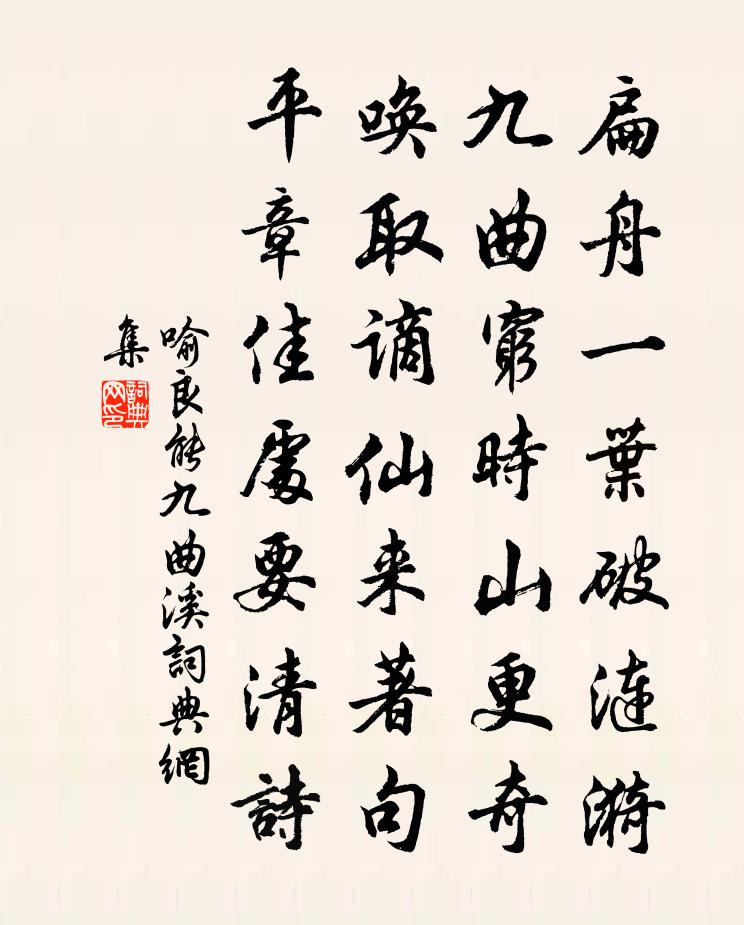 扁舟一葉破漣漪
九曲窮時山更奇
喚取謫仙来著句
平章佳處要清詩
喻良能九曲溪詞典網
集
詞典
网印